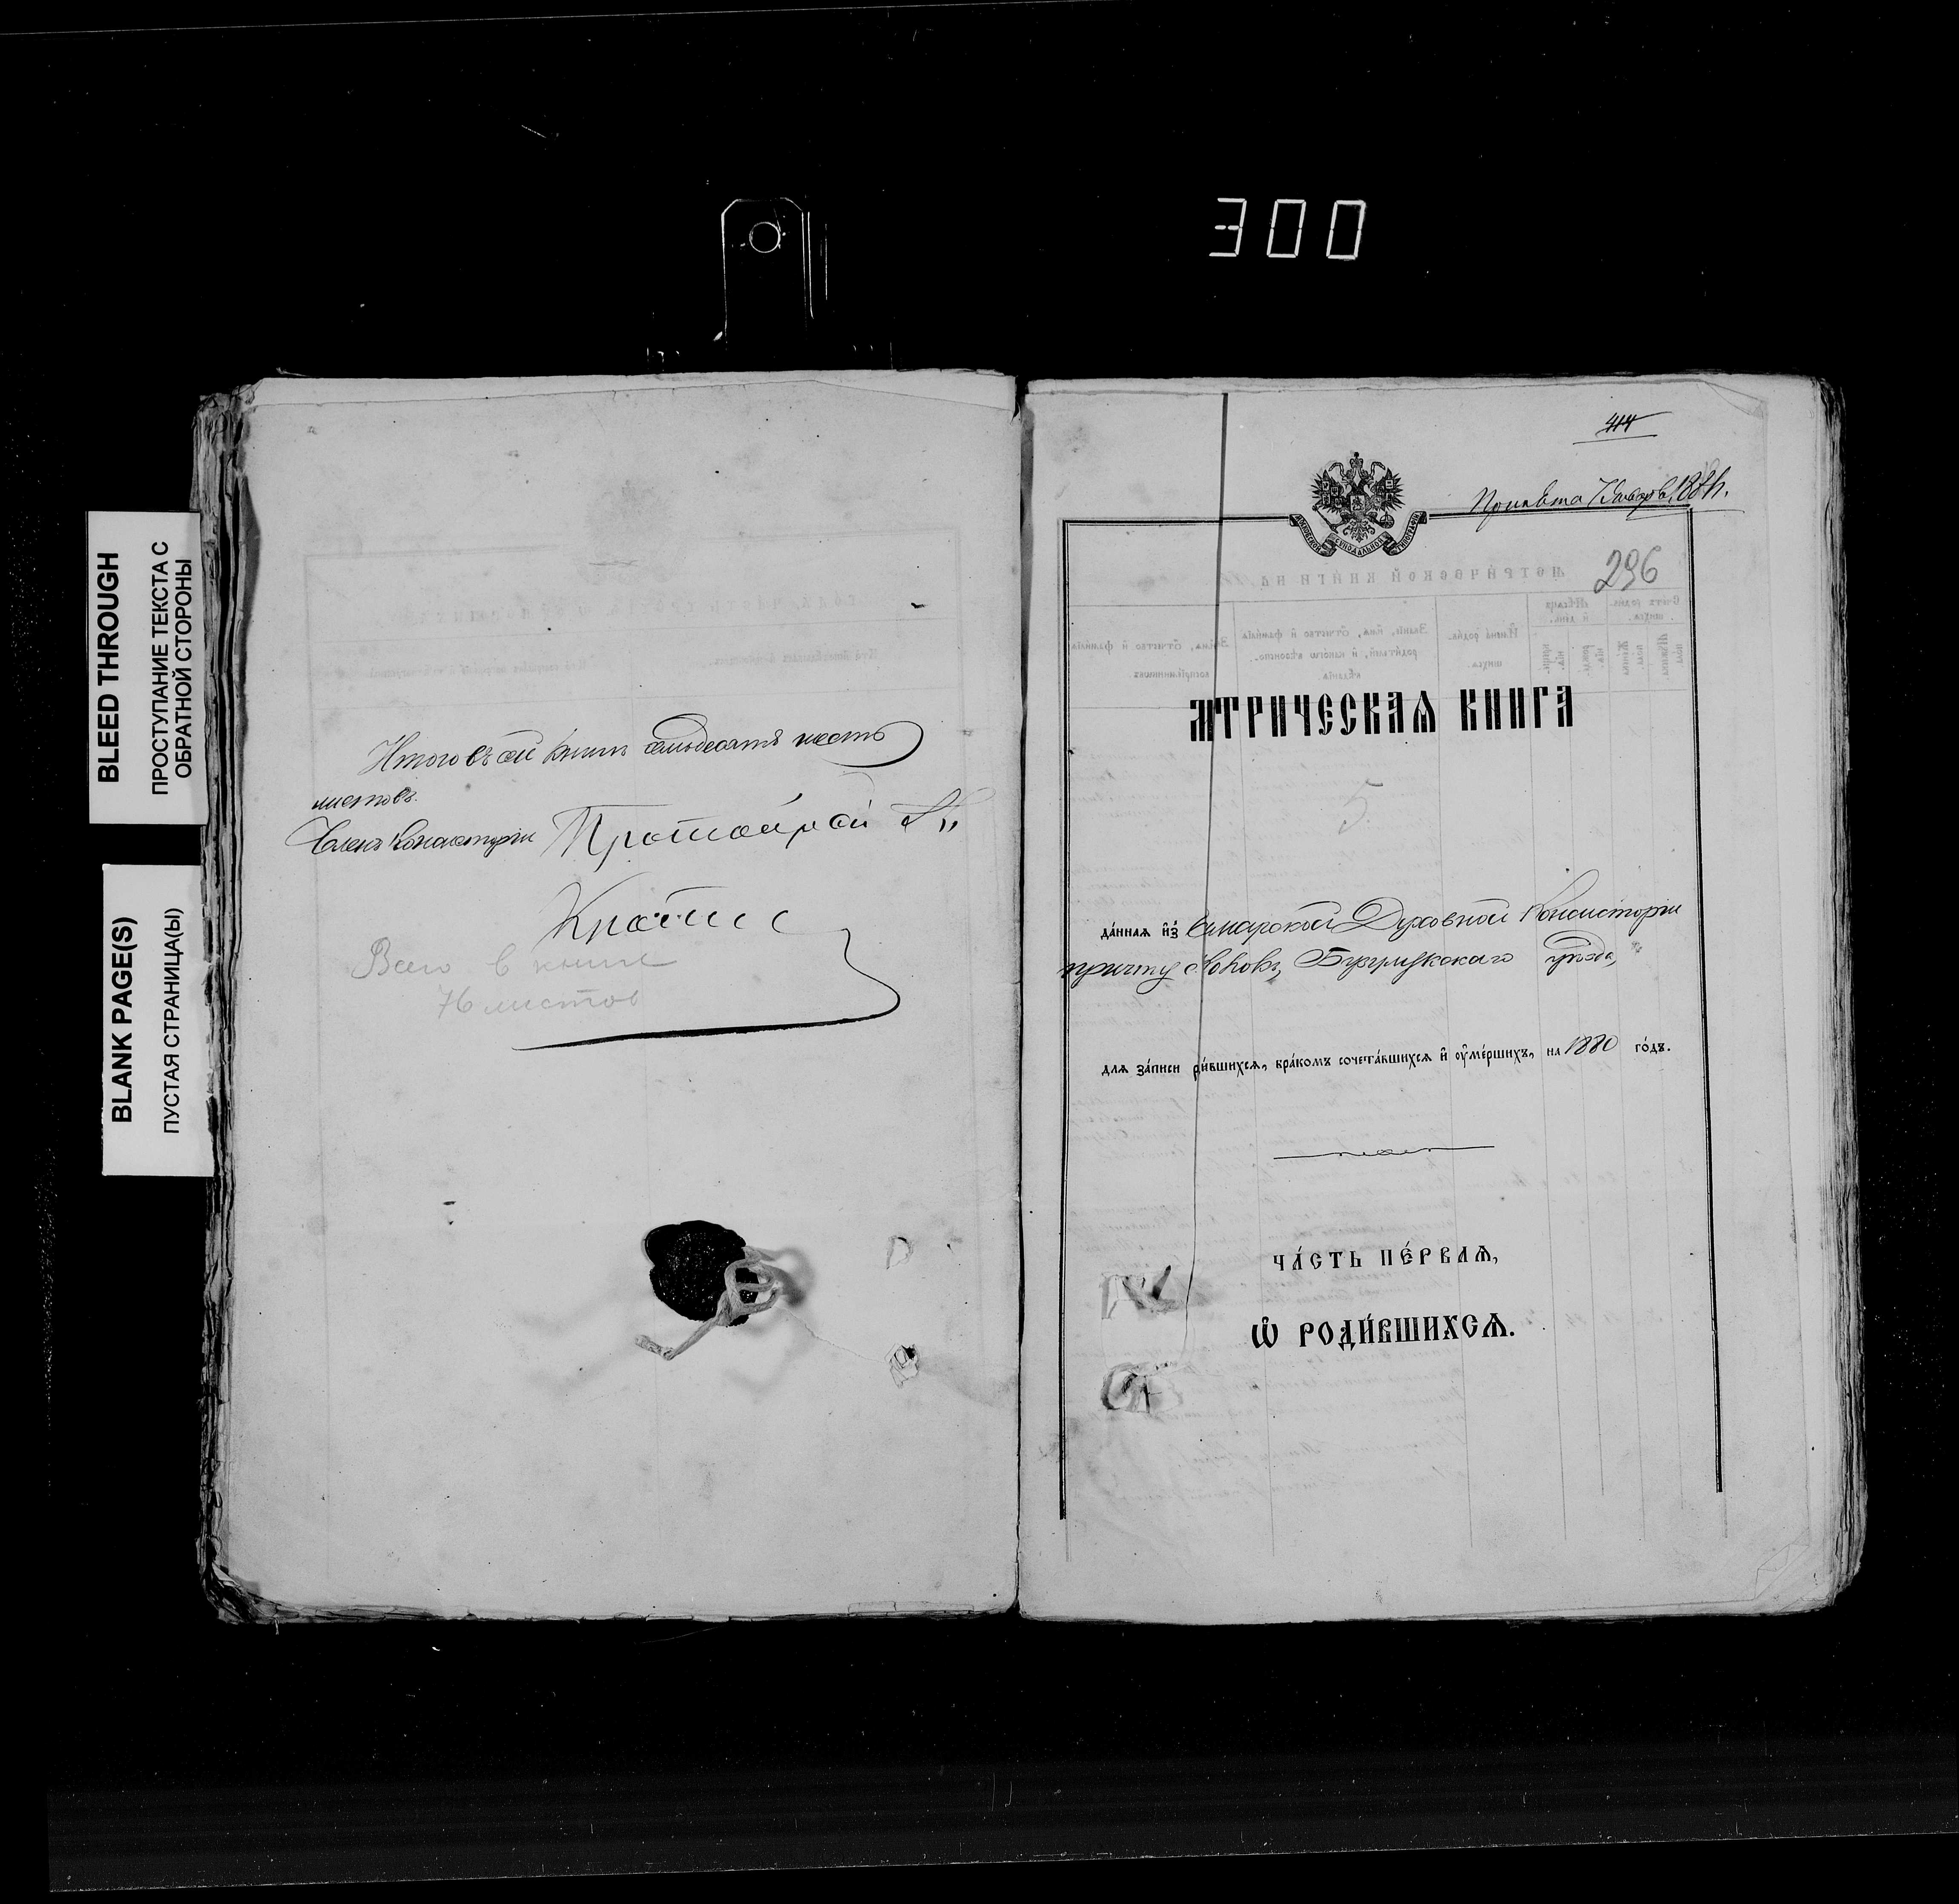 300
BLEED THROUGH
ПРОСТУПАНИЕ ТЕКСТА С
ОБРАТНОЙ СТОРОНЫ
BLANK PAGE(S)
ПУСТАЯ СТРАНИЦА(Ы)
Итого въ сей книгѣ семьдесятъ шесть
листовъ.
Членъ Консисторіи Протоіерей
Всего в книге
76 листов
414
МОСКОВСКОЙ СѴНОДАЛЬНОЙ ТИПОГРАФІИ
296
МТРИЧЕСКАѦ КНИГА
5
да́ннаѧ и҆з̾ Самарской Духовной Консисторіи
причту Бугурусланскаго уѣзда,
длѧ за́писи ри́вшихсѧ, бра́комъ сочета́вшихсѧ и҆ оу҆ме́ршихъ, на 1880 го́дъ.
ЧА́СТЬ ПЕ́РВАѦ,
Ѡ҆ РОДИ́ВШИХСѦ.